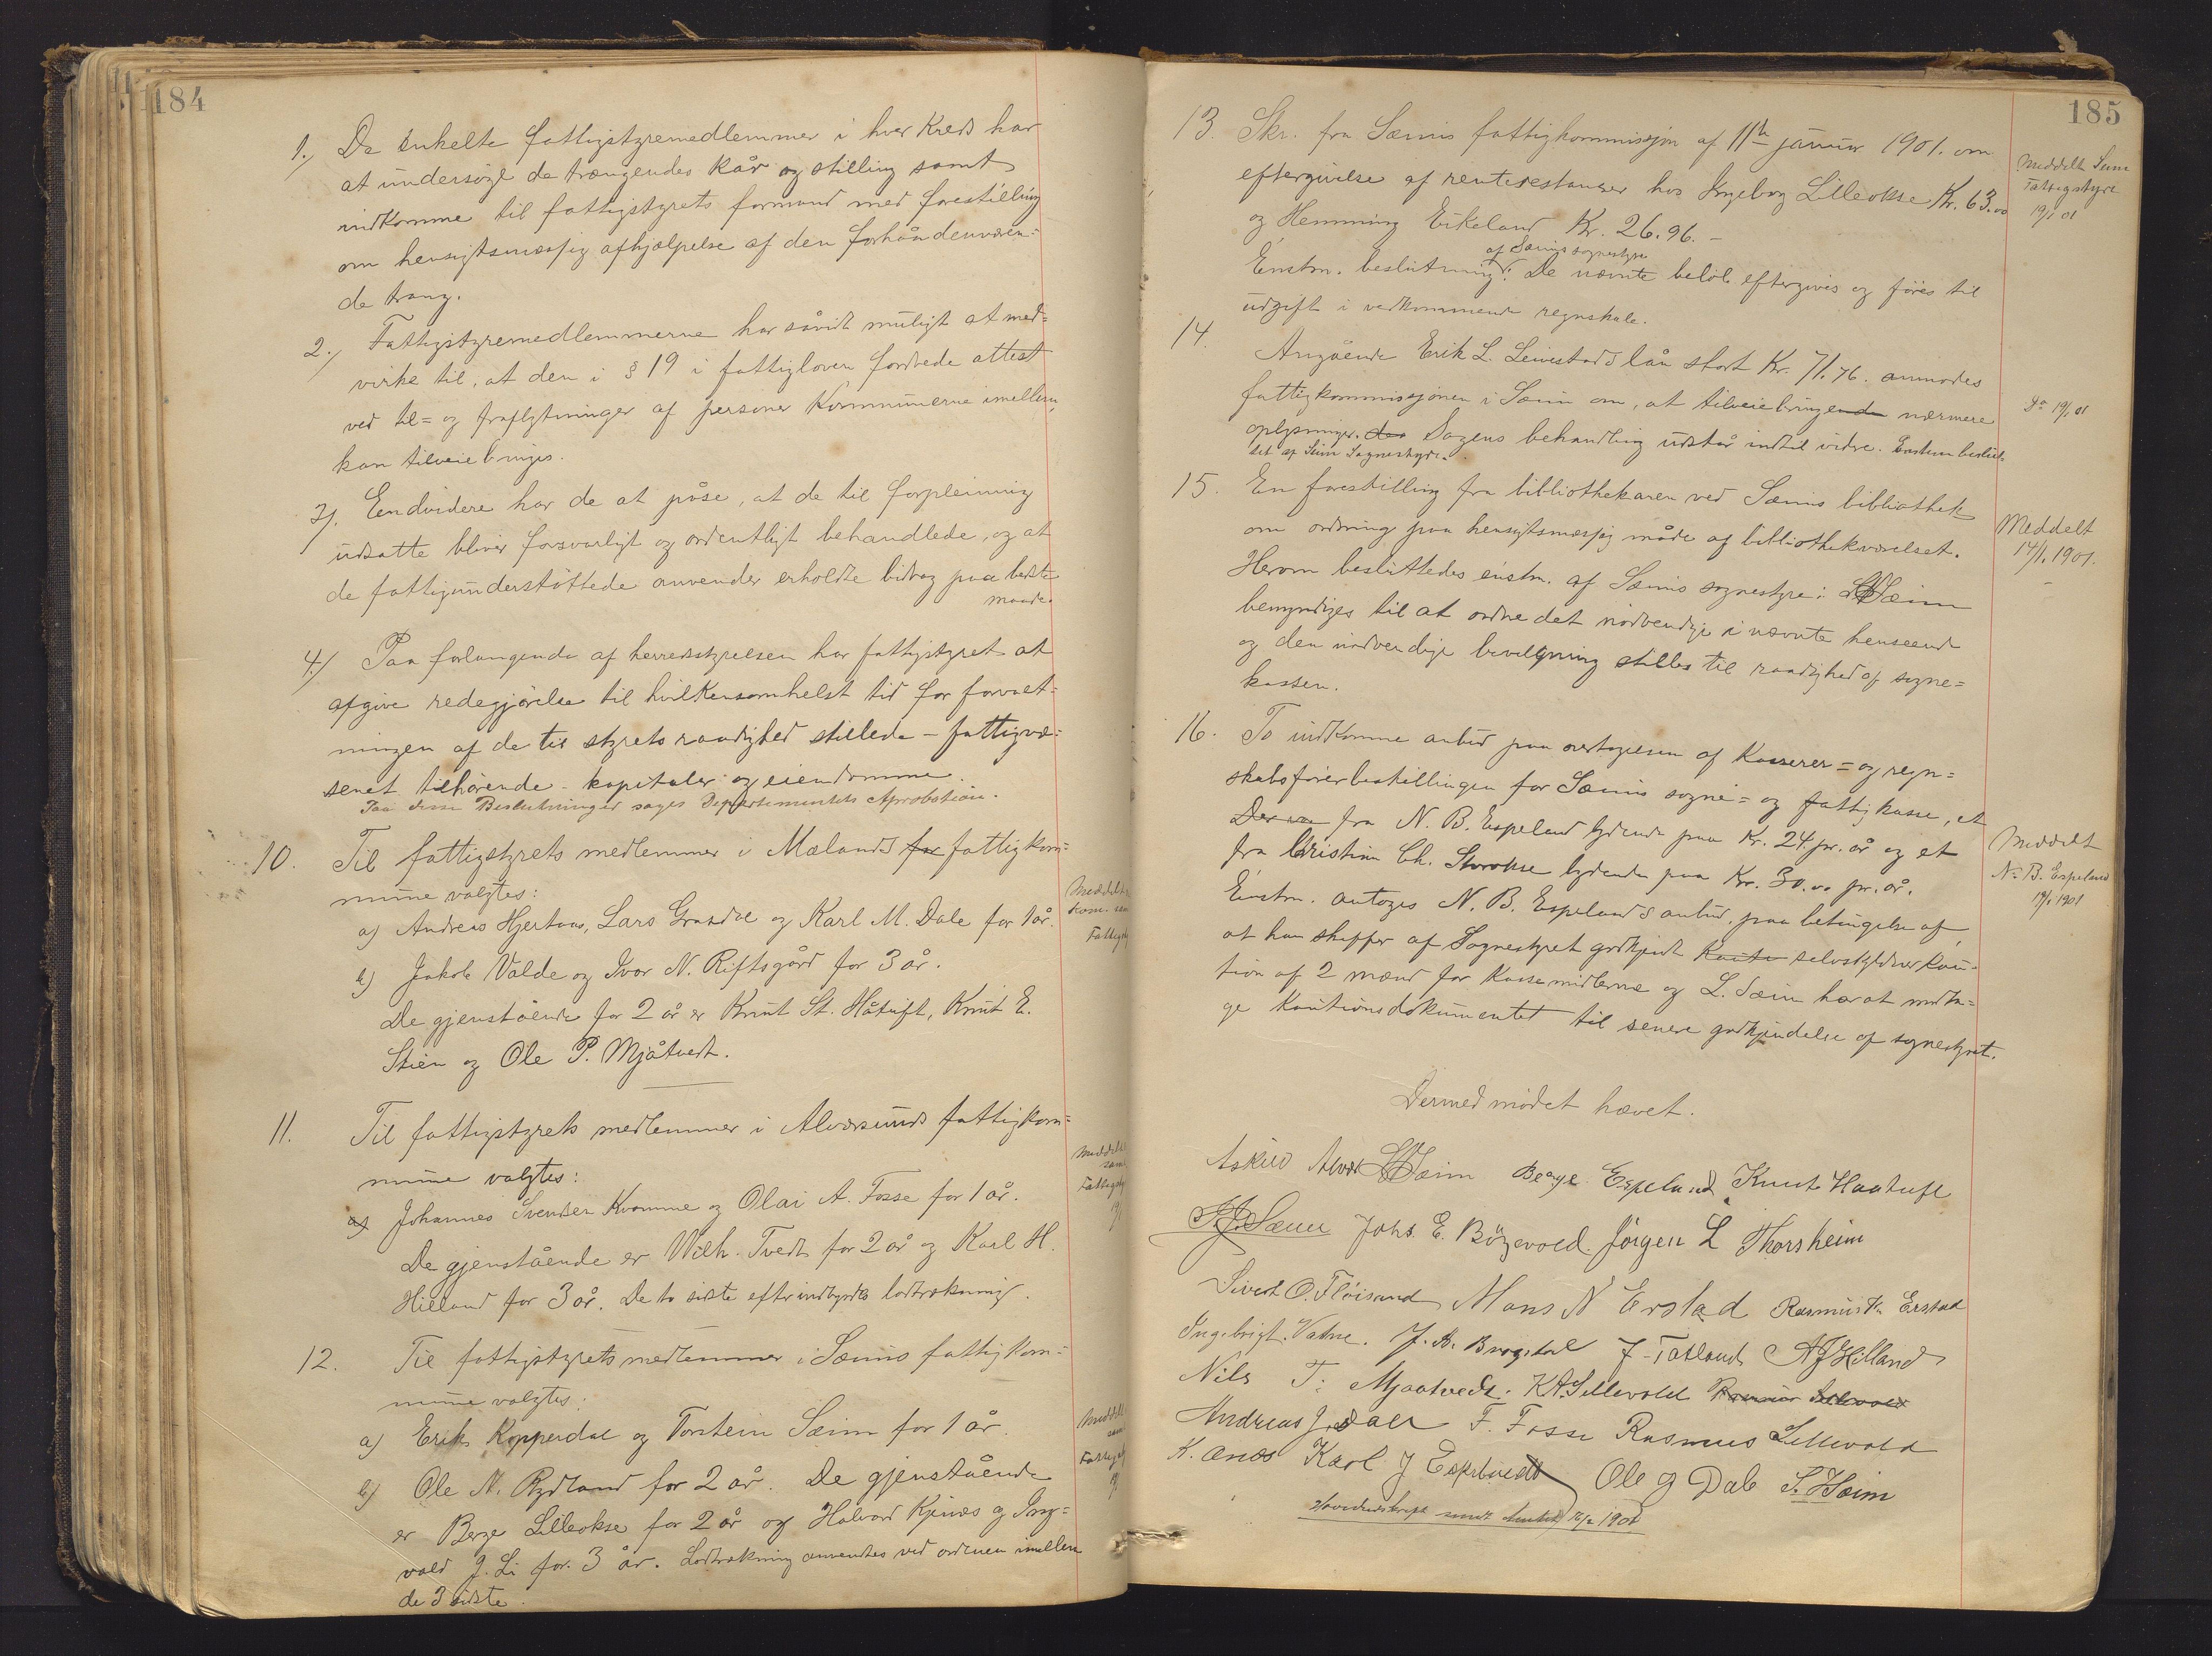 184
1.) De enkelte fattigstyremedlemmer i hver Kreds har
at undersöge de trængendes kår og stilling samt
indkomme til fattigstyrets formand med forestilling
om hensigtsmæssig afhjælpelse af den forhåndenværen=
de trang.
2.) Fattigstyremedlemmerne har såvidt muligt at med=
virke til, at den i § 19 i fattigloven fordrede attest
ved til= og fraflytninger af personer Kommunerne imellem,
kan tilveiebringes.
3). Eendvidere har de at påse, at de til forpleining
udsatte bliver forsvarligt og ordentligt behandlede, og at
de fattigunderstöttede anvender erholdte bidrag paa bedste
maade.
4.) Paa forlangende af herredsstyrelsen har fattigstyret at
afgive redegjörelse til hvilkensomhelst tid for forvalt=
ningen af de til styrets raadighed stillede - fattigvæ=
senet tilhörende - kapitaler og eiendomme.
Paa disse Beslutninger söges Departementets Aprobation.
10. Til fattigstyrets medlemmer i Mælands for fattigkom=
mune valgtes:
a) Andreas Hjertaas, Lars Grasdal og Karl M. Dale for 1 år.
b) Jakob Valde og Ivar N. Riftsgård for 3 år.
De gjenstående for 2 år er Knut St. Håtuft, Knut E.
Stien og Ole P. Mjåtvedt.
Meddelt
kom.
Fattigst
11. Til fattigstyrets medlemmer i Alversunds fattigkom=
mune valgtes:
a) Johannes Svendsen Kvamme og Olai A. Fosse for 1 år.
De gjenstående er Wilh. Tvedt for 2 år og Karl H.
Hilland for 3 år. De to sidste efter indbyrdes lodtrækning.
Meddelt
sam
Fattigst
12. Til fattigstyrets medlemmer i Sæims fattigkom=
mune valgtes:
a) Erik Kopperdal og Torstein Sæim for 1 år.
b) Ole N. Rydland for 2 år. De gjenstående
er Berge Lilleokse for 2 år og Halvard Kjenes og Ing=
vald J. Li for 3 år. Lodtrækning anvendtes ved ordenen imellem
de 3 sidste.
Meddelt
sam
Fattigst
185
13. Skr. fra Sæims fattigkommissjon af 11te januar 1901. om
eftergivelse af renterestanser hos Ingeborg Lilleokse Kr. 63.00
og Hemming Eikeland Kr. 26.96. -
af Sæims sognestyre
Enstm. beslutning: De nævnte beløb eftergives og föres til
udgift i vedkommende regnskab.
Meddelt Seim
Fattigstyre
19/1 01
14. Angående Erik L. Leivestads lån stort Kr. 71.76. anmodes
fattigkommissjonen i Sæim om, at tilveiebringende nærmere
oplysninger. Sagens behandling udstår indtil videre. Enstem beslut=
tet af Seim Sognestyre.
Do 19/1 01
15. En forestilling fra bibliothekaren ved Sæims bibliothek
om ordning paa hensigtsmæssig måde af bibliothekværelset.
Herom besluttedes enstm. af Sæims sognestyre: Sæim
bemyndiges til at ordne det nödvendige i nævnte henseende
og den nödvendige bevilgning stilles til raadighed af sogne=
kassen.
Meddelt
14/1 1901.
16. To indkomne anbud paa overtagelsen af Kasserer= og regn=
skabsförerbestillingen for Sæims sogne= og fattigkasse, et
Der var fra N. B. Espeland lydende paa Kr. 24 pr. år og et
fra Christian Ch. Storokse lydende paa Kr. 30.00 pr. år.
Enstm. antoges N. B. Espelands anbud, paa betingelse af,
at han skaffer af Sognestyret godkjendt Kauti selvskyldnerkau=
tion af 2 mænd for kassemidlerne og L. Sæim har at modta=
ge kautionsdokumentet til senere godkjendelse af sognestyret.
Meddelt
N. B. Espeland
19/1 1901
Dermed mödet hævet.
Askild Alver Sæim Berge Espeland Knut Haatuft
Johs. E. Bögevold. Jörgen L Thorsheim
Sivert O. Flöisand Mons N Erstad Rasmus Erstad
Ingebrigt Vatne. J. A. Brogstal J. Tatland AJHilland
Nils T. Mjaatvedt. K A Lillevold
Andreas J. Dale F. Fosse Rasmus Lillevold
K. Ænes Karl J Espetvedt Ole J Dale S. Hæim
Hovedudskrift sendt Amtet 16/2 1901